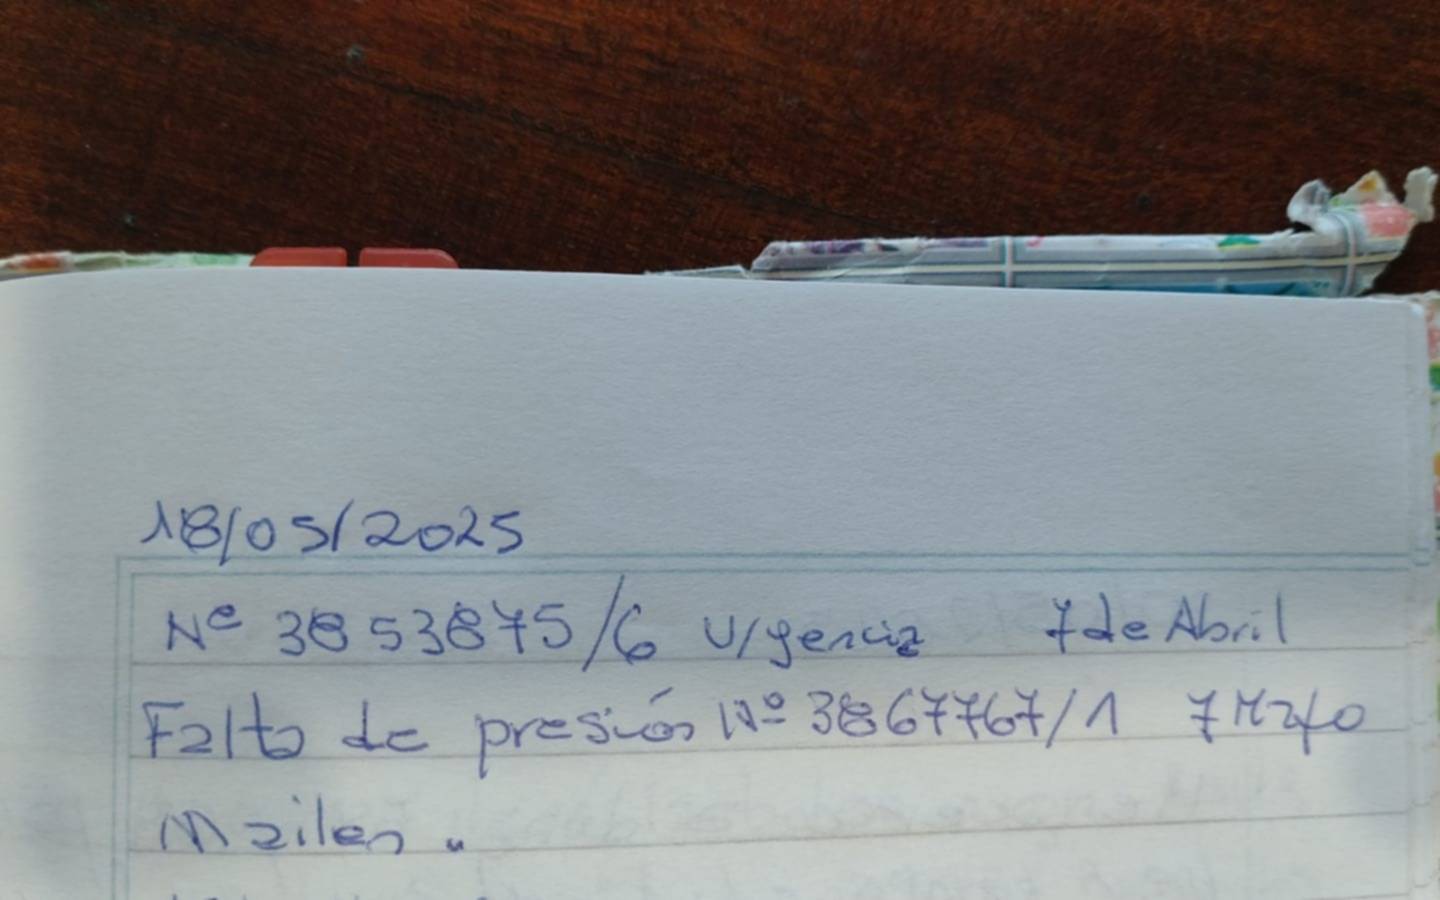 18/05/2025
Nº 3853875/6 Urgencia 7 de Abril
Falto de presión Nº 3867767/1 7 Mayo
Mailen.